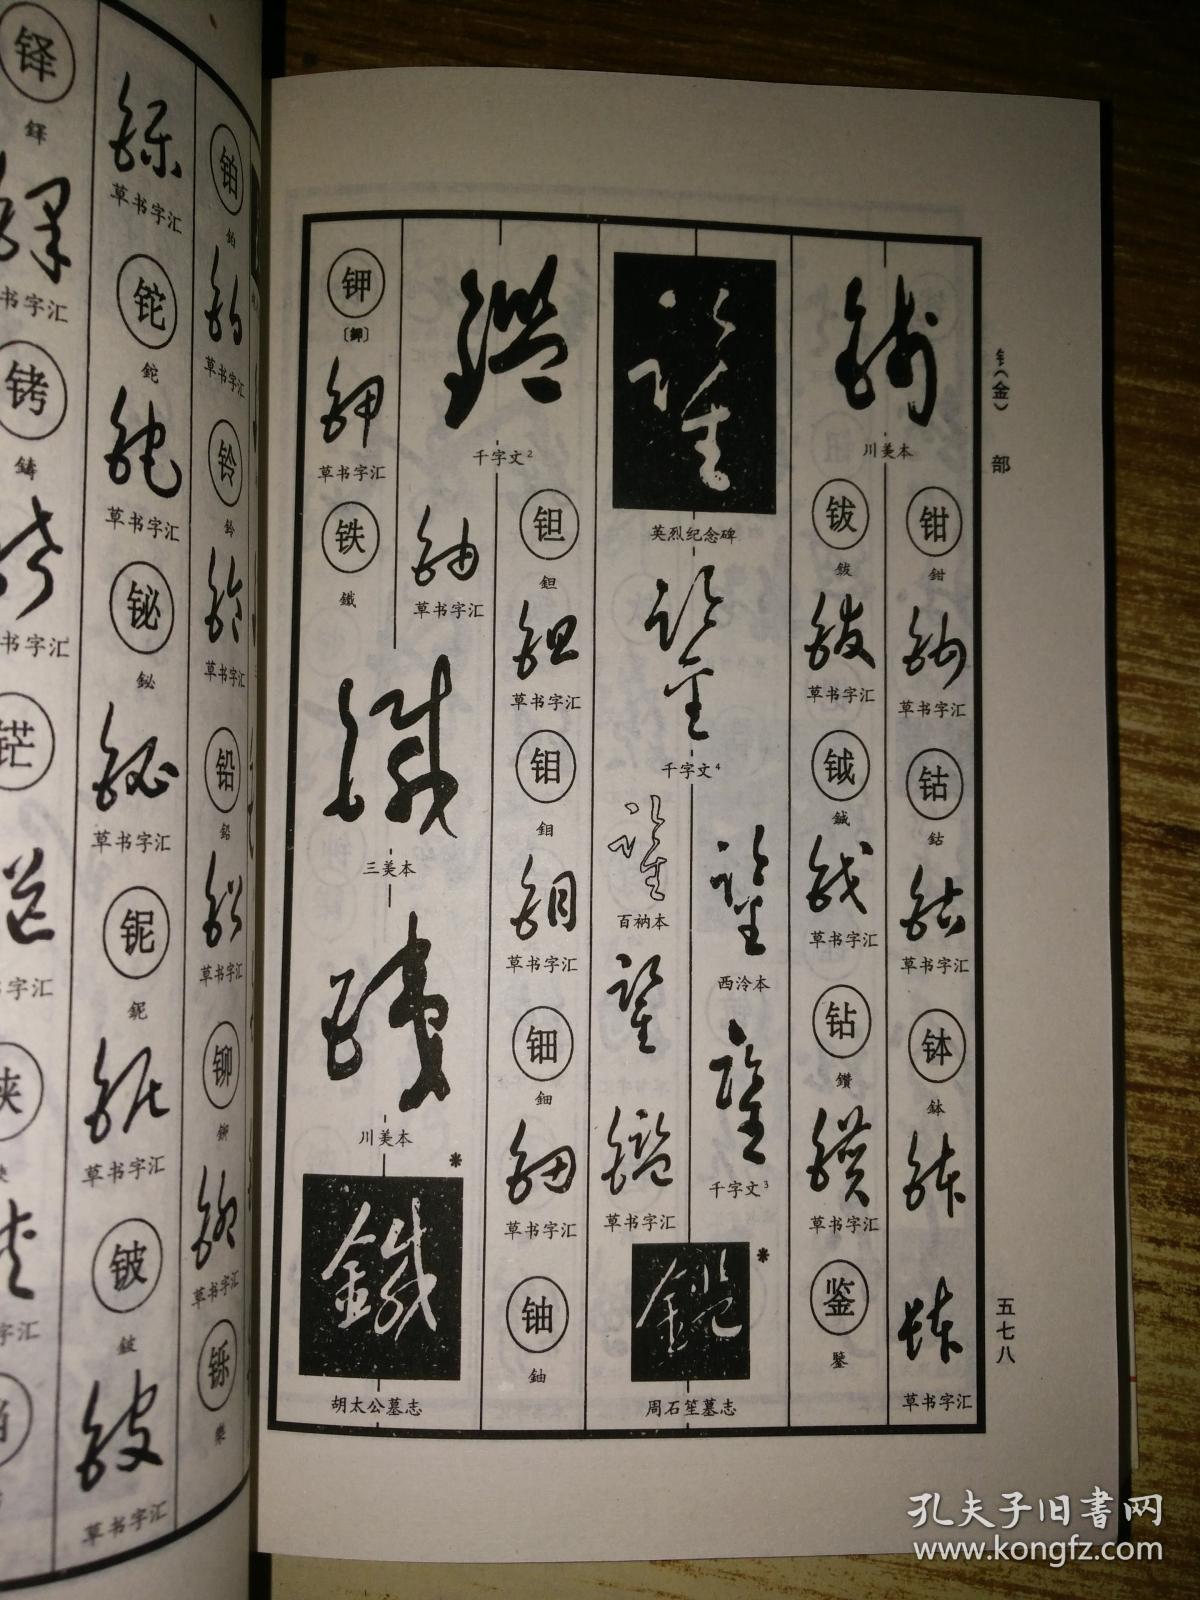 钅(金)部
五七八
川美本
钳
鉗
草书字汇
钴
鈷
草书字汇
钵
鉢
草书字汇
草书字汇
钹
鈸
草书字汇
钺
鉞
草书字汇
钻
鑽
草书字汇
鉴
鑒
英烈纪念碑
千字文4
西泠本
千字文3
百衲本
草书字汇
周石笙墓志
千字文2
钽
鉭
草书字汇
钼
鉬
草书字汇
钿
鈿
草书字汇
铀
鈾
草书字汇
钾
〔鉀〕
草书字汇
铁
鐵
三美本
川美本
胡太公墓志
铂
鉑
草书字汇
铃
鈴
草书字汇
铅
鉛
草书字汇
铆
鉚
草书字汇
铄
鑠
草书字汇
铊
鉈
草书字汇
铋
鉍
草书字汇
铌
鈮
草书字汇
铍
鈹
草书字汇
铎
鐸
书字汇
铸
鑄
书字汇
铓
字汇
字汇
孔夫子旧书网
www.kongfz.com